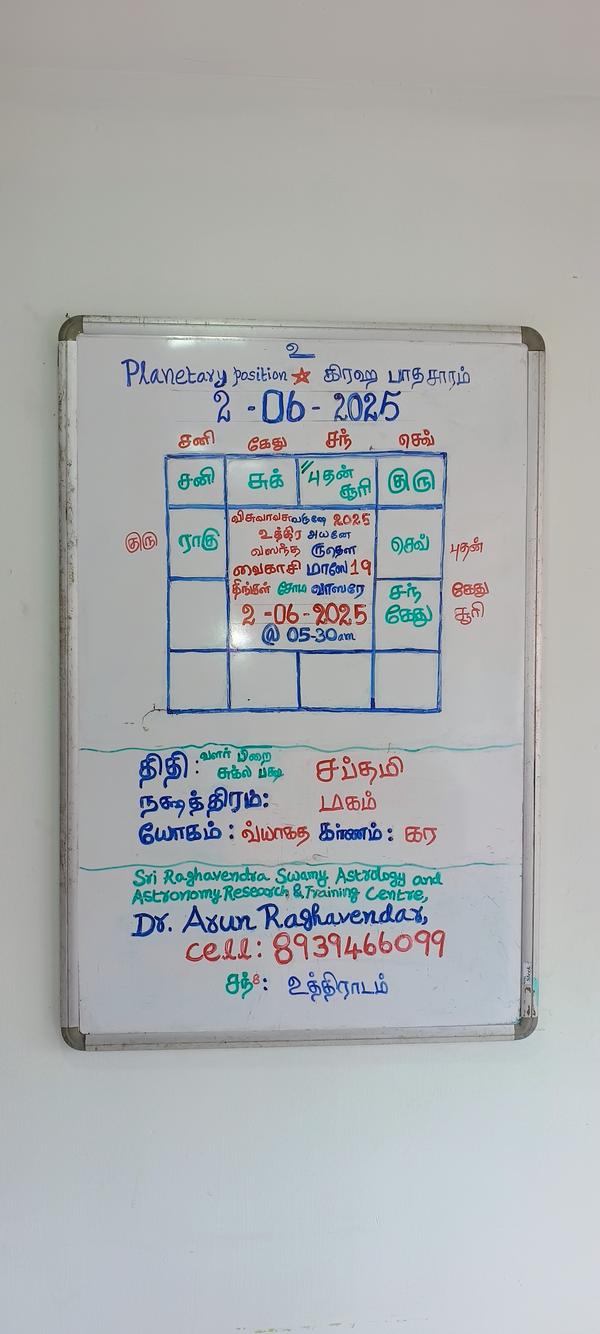 உ
Planetary position ☆ கிரஹ பாதசாரம்
2 - 06 - 2025
சனி கேது சந் செவ்
சனி சுக் "புதன் சூரி குரு
குரு ராகு செவ் புதன்
சந் கேது கேது சூரி
விசுவாவசுவருஷே 2025
உத்திர அயனே
வஸந்த ருதௌ
வைகாசி மாஸே 19
திங்கள் சோம வாஸரே
2 - 06 - 2025
@ 05-30am
திதி : வளர் பிறை சுக்ல பக்ஷ சப்தமி
நக்ஷத்திரம்: மகம்
யோகம் : வ்யாகத கர்ணம் : கர
Sri Raghavendra Swamy Astrology and
Astronomy Research & Training Centre,
Dr. Arun Raghavendar,
cell : 8939466099
சந்8 : உத்திராடம்